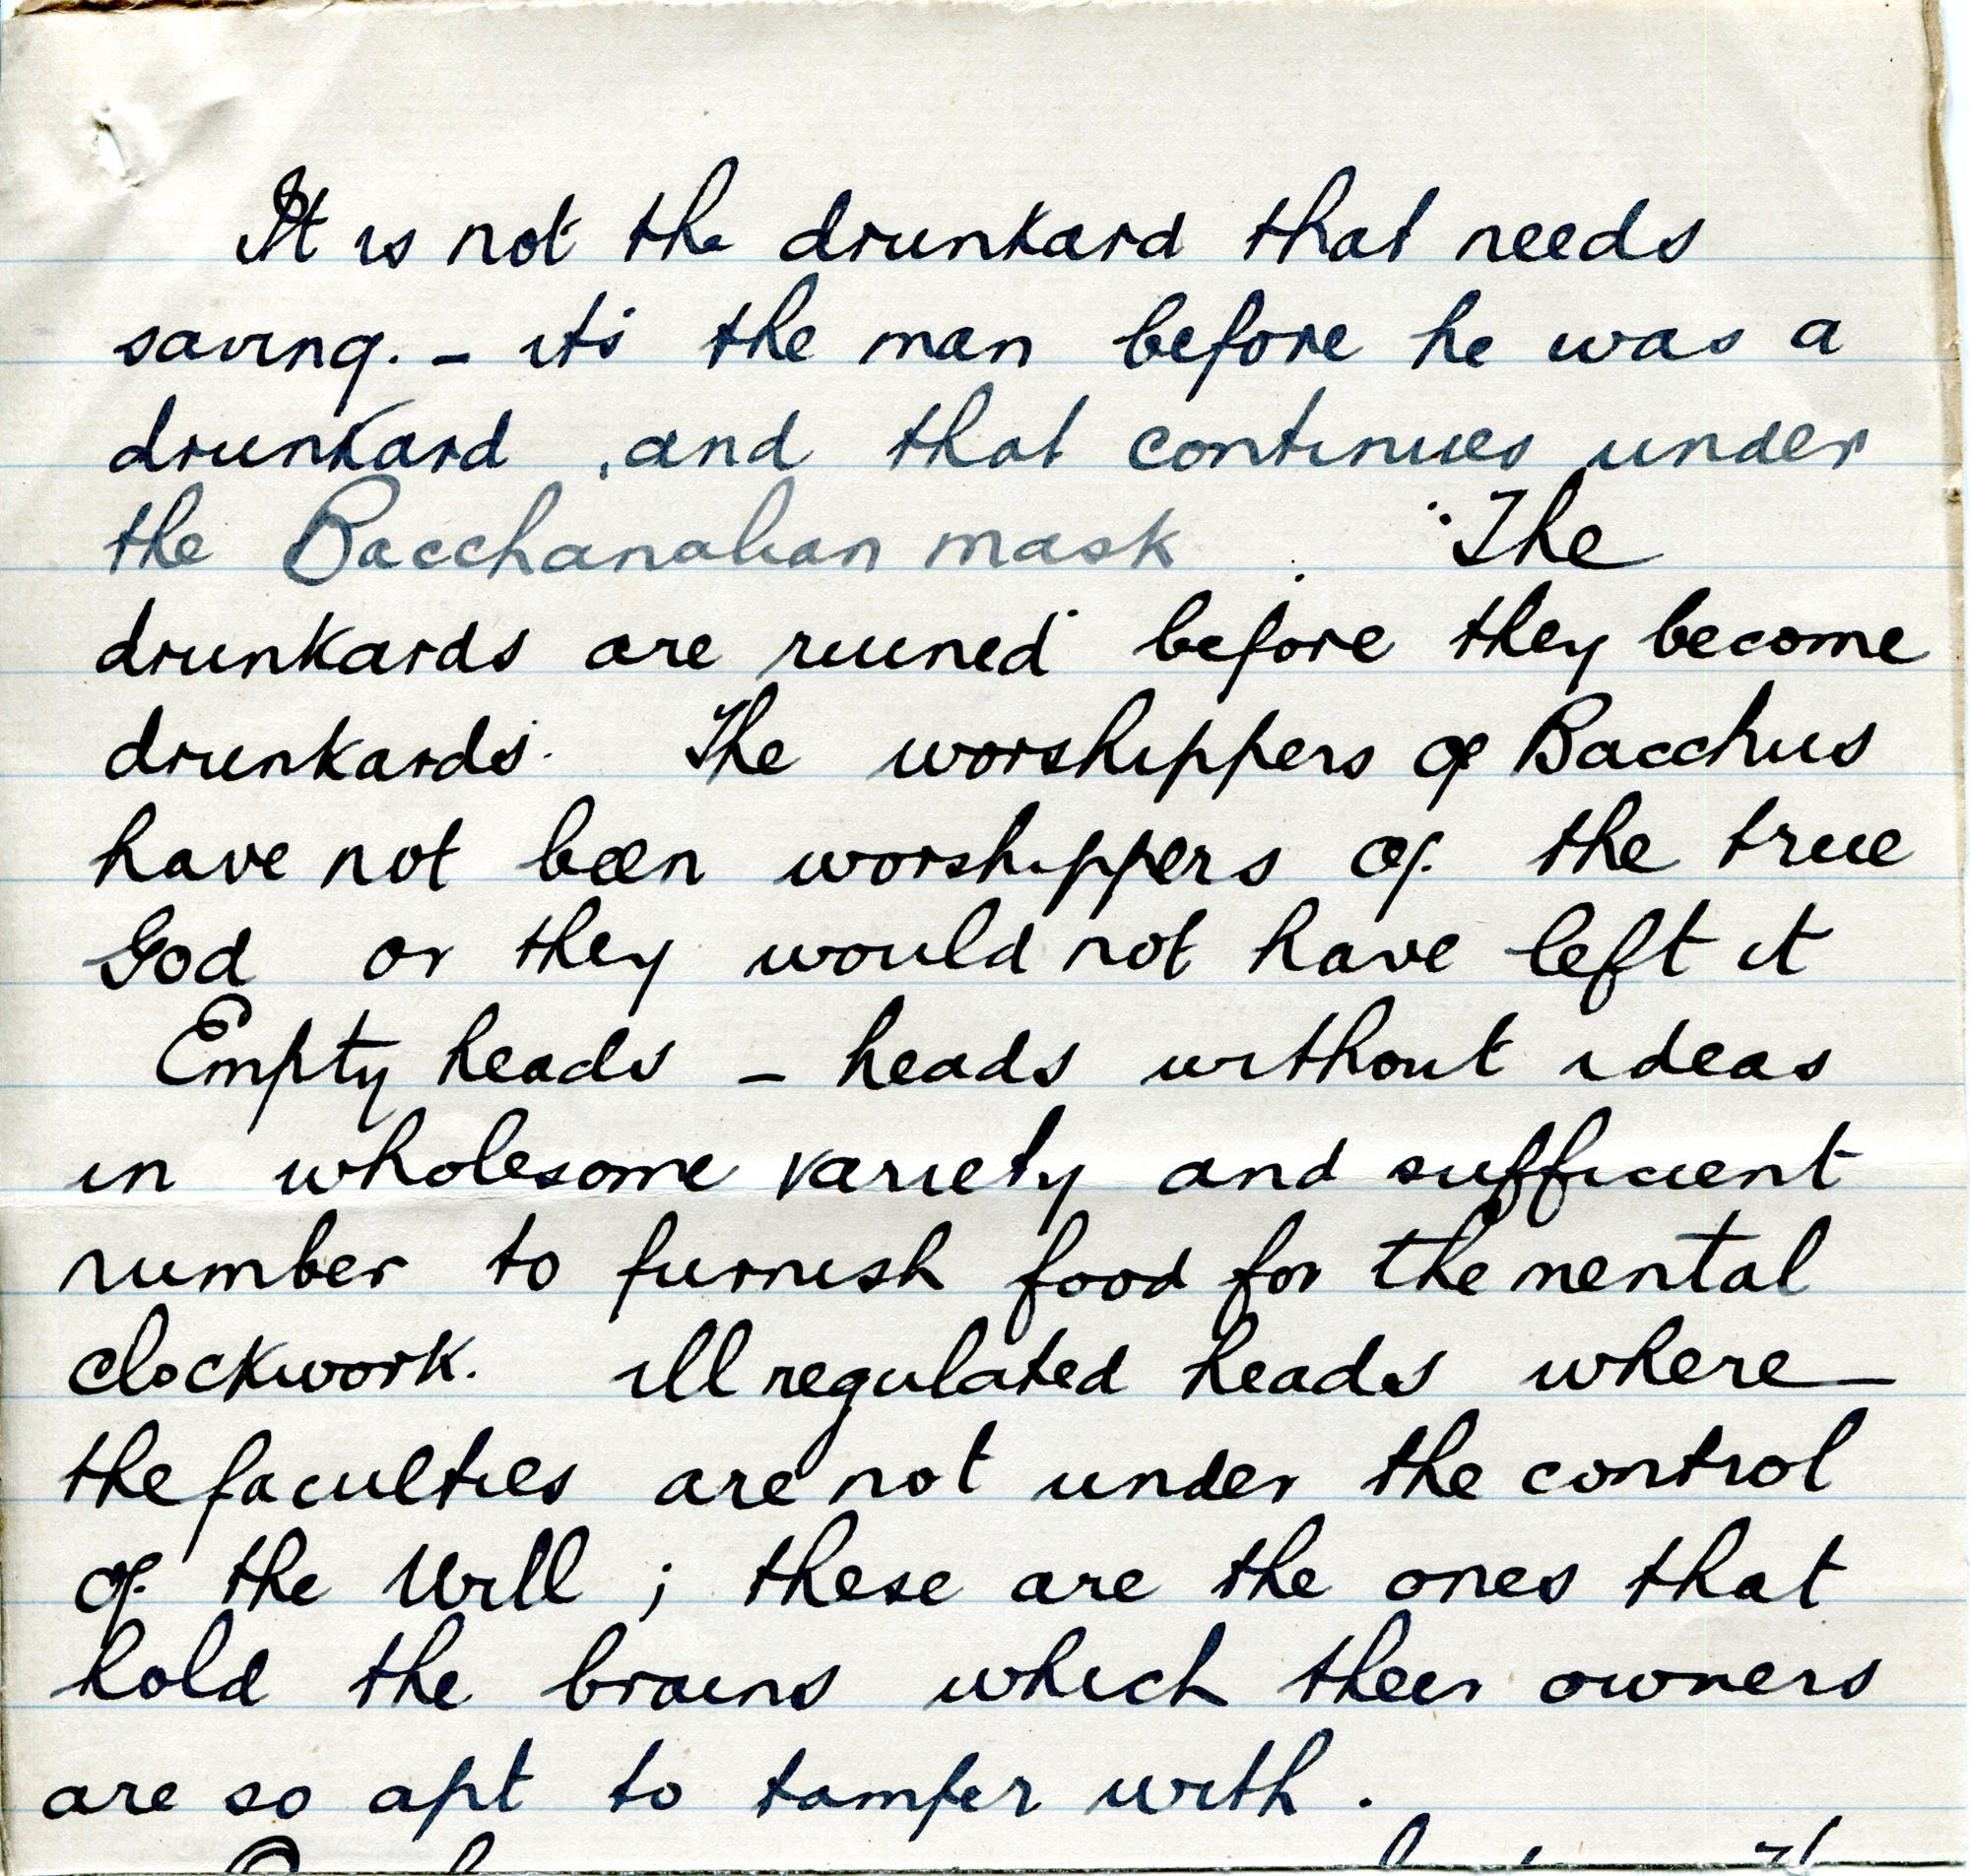 It is not the drunkard that needs
saving. - its the man before he was a
drunkard, and that continues under
the Bacchanalian mask. "The
drunkards are ruined" before they become
drunkards. The worshippers of Bacchus
have not been worshippers of the true
God or they would not have left it
Empty heads - heads without ideas
in wholesome variety and sufficient
number to furnish food for the mental
clockwork. ill regulated heads where
the faculties are not under the control
of the Will ; these are the ones that
hold the brains which their owners
are so apt to tamper with.